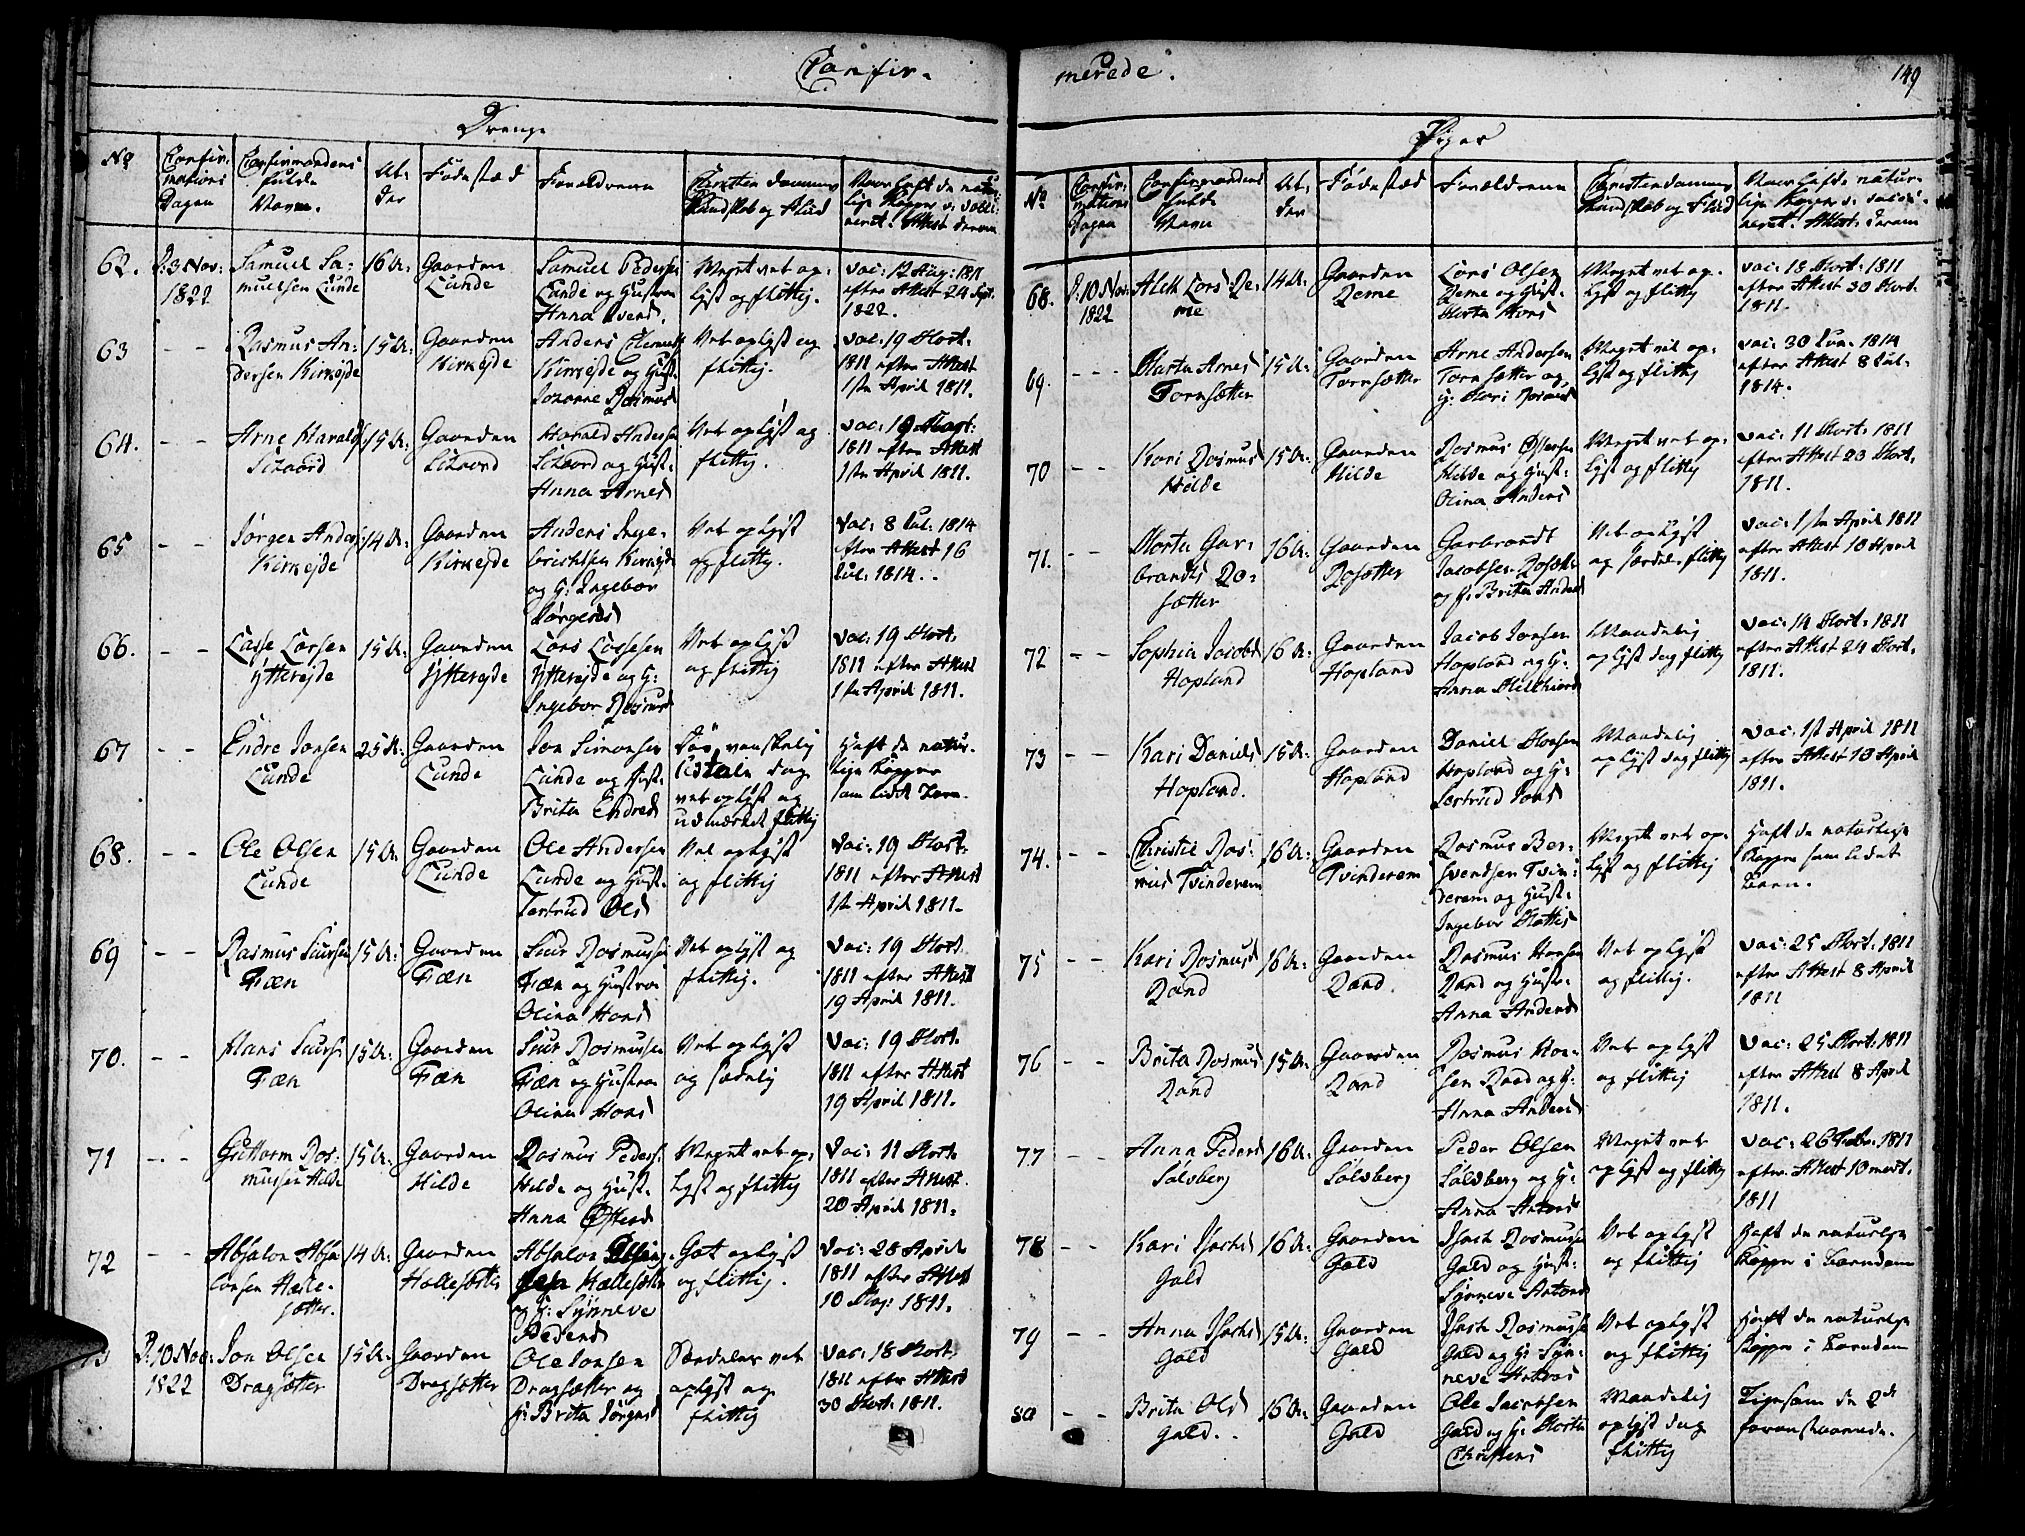 Confir-
Drenge
No
Confir-
mations
Dagen
Confirmandens
fulde
Navn.
Al-
der
Fødested
Forældrene
Christendoms
Kundskab og Flid
62.
D: 3 Nov:
1822
Samuel Sa-
muelsen Lunde
16 A:
Gaarden
Lunde
Samuel Peders:
Lunde og Hustroe
Anna Iverd.
Meget vel op-
lyst og flittig.
vac: 12 Aug: 1811
efter Attest 24 Sept.
1822.
63
- -
Rasmus An-
dersen Kirkejde
15 A:
Gaarden
Kirkejde
Anders
Kirkejde og Hust:
Vel oplyst og
flittig.
vac: 19 Mart.
1811 efter Attest
1ste April 1811.
64.
- -
Arne Haralds:
15 A:
Gaarden
Harald Anders:
Anna Arnesd
Vel oplyst og
flittig.
vac: 19 Mart:
1811 efter Attest
1ste April 1811.
65
- -
Jørgen Anders:
Kirkejde
14 A:
Gaarden
Kirkejde
Anders Inge-
brichtsen Kirkejde
og H: Ingebor
Jørgensd
Vel oplyst
og flittig.
vac: 8 Jul: 1814
efter Attest 16
Jul: 1814.
66.
- -
Lasse Larsen
Ytterejde
15 A:
Gaarden
Ytterejde
Lars Lassesen
Ytterejde og H:
Ingebor Rasmusd
Vel oplyst
og flittig
vac: 19 Mart.
1811 efter Attest
1ste April 1811.
67
- -
Endre Jonsen
Lunde
25 A:
Gaarden
Lunde
Jon Simonsen
Lunde og Hust:
Brita Endresd
vanskelig
dog
vel oplyst og
udmærket flittig
Haft de natur-
lige Kopper
som lidet Barn.
68.
- -
Ole Olsen
Lunde
15 A:
Gaarden
Lunde
Ole Andersen
Lunde og Hust:
Gertrud Olsd
Vel oplyst
og flittig
vac: 19 Mart.
1811 efter Attest
1ste April 1811.
69
- -
Rasmus Siursen
Fæn
15 A:
Gaarden
Fæn
Siur Rasmussen
Fæn og Hustroe
Olina Hansd
Vel oplyst og
flittig.
vac: 19 Mart.
1811 efter Attest
19 April 1811.
70.
- -
Hans Siurs:
Fæn
15 A:
Gaarden
Fæn
Siur Rasmussen
Fæn og Hustroe
Olina Hansd
Vel oplyst
og sædelig
vac: 19 Mart.
1811 efter Attest
19 April 1811.
71
- -
Guttorm Ras-
mussen Hilde
15 A:
Gaarden
Hilde
Rasmus Peders:
Hilde og Hust:
Anna
Meget vel op-
lyst og flittig
vac: 11 Mart.
1811 efter Attest.
20 April 1811.
72
- -
Absalon Absa-
lonsen Hælle-
sætter.
14 A:
Gaarden
Hællesætter
Absalon
Hællesætter
og H: Synneve
Pedersd
Got oplyst
og flittig.
vac: 28 April
1811 efter Attest
10 Maj: 1811.
73
D: 10 Nov:
1822
Jon Olsen
Dragsætter
15 A:
Gaarden
Dragsætter
Ole Jonsen
Dragsætter og
H: Brita Jørgensd
Særdeles vel
oplyst og
flittig
vac: 18 Mart:
1811 efter Attest
30 Mart: 1811.
merede.
149
Piger
No
Confir-
mations
Dagen
Confirmandens
fulde
Navn
Al-
der
Fødested
Forældrene
Christendoms
Kundskab og Flid
68.
D: 10 Nov:
1822
14 A:
Gaarden
Lars Olsen
Meget vel op-
lyst og flittig
vac: 18 Mart: 1811
efter Attest 30 Mart.
1811.
69.
- - -
Marta Arnesd
Tornsætter
15 A:
Gaarden
Tornsætter
Arne Andersen
Tornsætter og
Meget vel op-
lyst og flittig
vac: 30 Jun. 1814
efter Attest 8 Jul.
1814.
70
- -
Kari Rasmusd
Hilde
15 A:
Gaarden
Hilde
Rasmus
Hilde og Hust:
Olina Andersd
Meget vel op-
lyst og flittig
vac: 11 Mart: 1811
efter Attest 20 Mart.
1811.
71.
- -
Marta Gar-
brandsd Ro-
sætter
16 A:
Gaarden
Rosætter
Garbrandt
Jacobsen
og H: Brita Andersd
Vel oplyst
og særdeles flittig
vac: 1ste April 1811
efter Attest 10 April
1811.
72
- -
Sophia Jacobsd
Hopland
16 A:
Gaarden
Hopland
Jacob Jonsen
Hopland og H:
Anna
Maadelig
oplyst dog flittig
vac: 14 Mart: 1811
efter Attest 24 Mart.
1811.
73
- -
Kari Danielsd
Hopland.
15 A:
Gaarden
Hopland
Daniel
Hopland og H:
Gertrud Jonsd
Maadelig
oplyst dog flittig
vac: 1st April 1811
efter Attest 10 April
1811.
74.
- -
Christie Ras-
musd Tvinderem
16 A:
Gaarden
Tvinderem
Rasmus Ber-
Tvin-
derem og Hust:
Ingebor
Meget vel op-
lyst og flittig
Haft de naturlige
Kopper som lidet
Barn.
75
- -
Kari Rasmusd
Rand
16 A:
Gaarden
Rand.
Rasmus Hansen
Rand og Hust:
Anna Andersd
Vel oplyst
og flittig.
vac: 25 Mart. 1811
efter Attest 8 April
1811
76
- -
Brita Rasmusd
Rand
15 A:
Gaarden
Rand
Rasmus Han-
sen Rand og H:
Anna Andersd
Vel oplyst
og flittig
vac: 25 Mart. 1811
efter Attest 8 April
1811.
77
- -
Anna Pedersd
Sølvberg
16 A:
Gaarden
Sølvberg
Peder Olsen
Sølvberg og H:
Anna
Meget vel
oplyst og flittig
vac: 26 Febr. 1811
efter Attest 10 mart.
1811
78
- -
Kari Isachsd
Gald
16 A:
Gaarden
Gald
Isach Rasmuss:
Gald og Hust:
Synneve
Vel oplyst
og flittig
Haft de naturlige
Kopper i Barndom
79
- -
Anna Isachsd
Gald
15 A:
Gaarden
Gald
Isach Rasmuss:
Gald og H: Syn-
neve
Vel oplyst
og flittig
Haft de naturlige
Kopper i Barndom
80
- -
Brita Olsd
Gald.
16 A:
Gaarden
Gald
Ole Jacobsen
Gald og H: Marta
Maadelig
oplyst dog
flittig
Ligesom de 2de
foranstaaende.